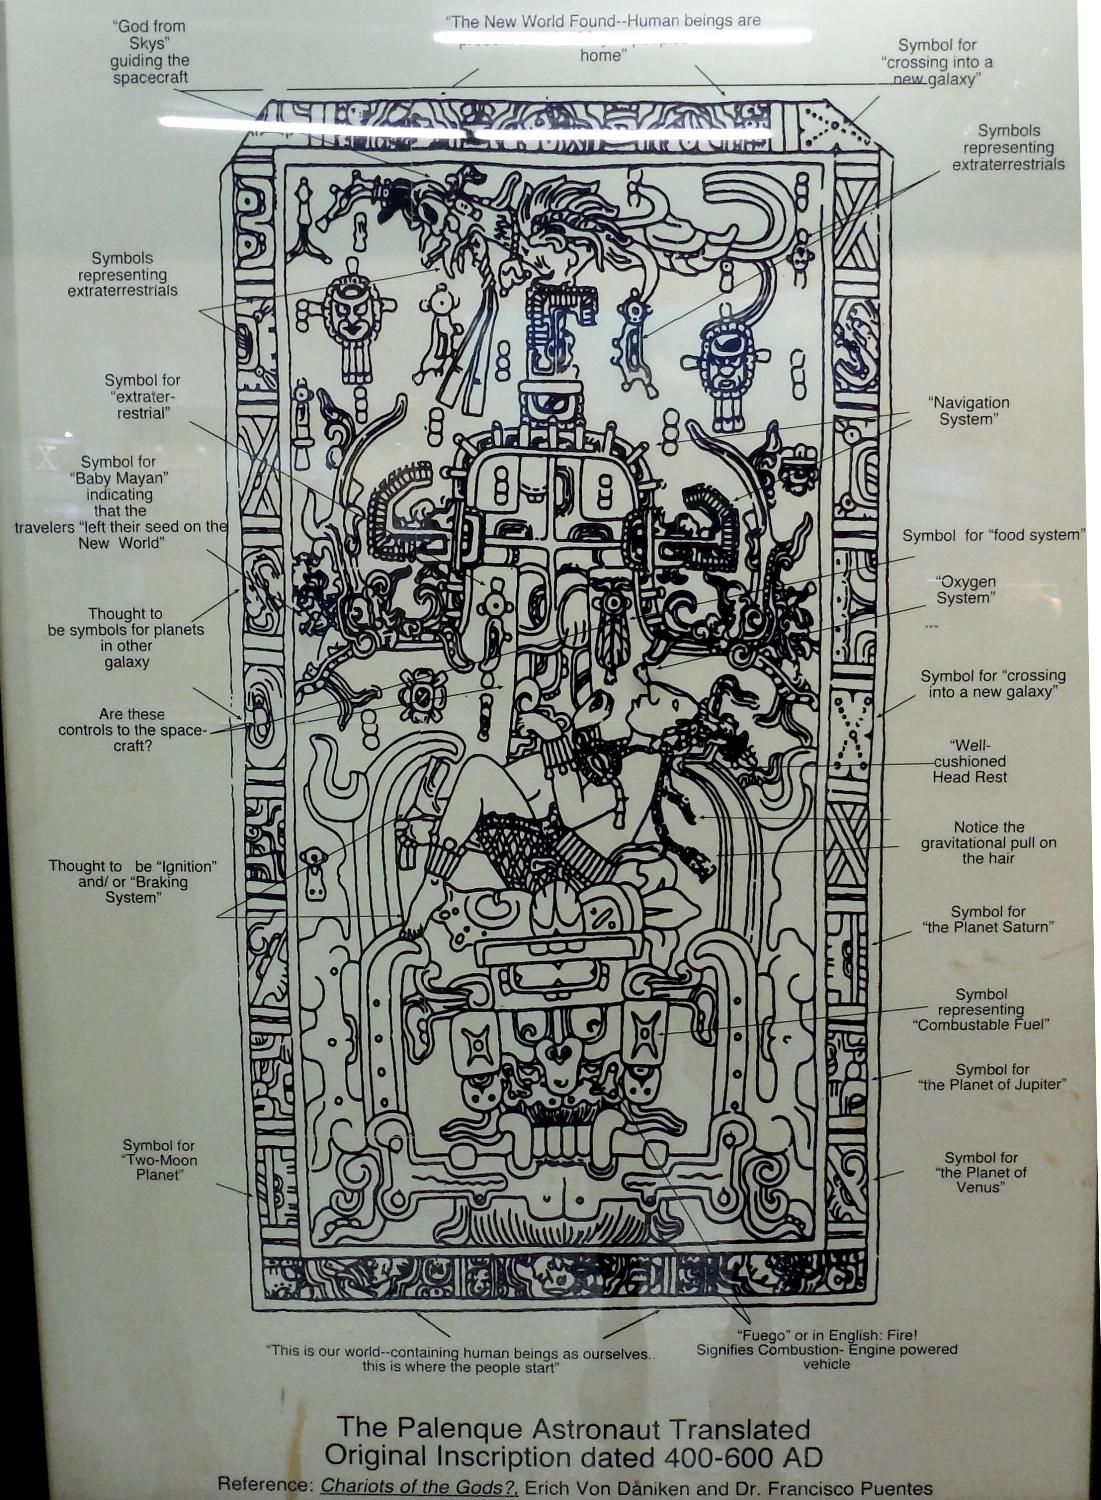 "God from
Skys"
guiding the
spacecraft
"The New World Found--Human beings are
home"
Symbol for
"crossing into a
new galaxy"
Symbols
representing
extraterrestrials
Symbols
representing
extraterrestrials
Symbol for
"extrater-
restrial"
"Navigation
System"
Symbol for
"Baby Mayan"
indicating
that the
travelers "left their seed on the
New World"
Symbol for "food system"
"Oxygen
System"
Thought to
be symbols for planets
in other
galaxy
Symbol for "crossing
into a new galaxy"
Are these
controls to the space-
craft?
"Well-
cushioned
Head Rest
Notice the
gravitational pull on
the hair
Thought to be "Ignition"
and/ or "Braking
System"
Symbol for
"the Planet Saturn"
Symbol
representing
"Combustable Fuel"
Symbol for
"the Planet of Jupiter"
Symbol for
"Two-Moon
Planet"
Symbol for
"the Planet of
Venus"
"This is our world--containing human beings as ourselves..
this is where the people start"
"Fuego" or in English: Fire!
Signifies Combustion- Engine powered
vehicle
The Palenque Astronaut Translated
Original Inscription dated 400-600 AD
Reference: Chariots of the Gods?, Erich Von Dåniken and Dr. Francisco Puentes